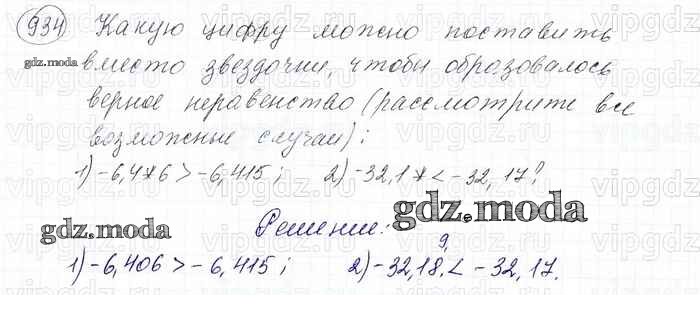 934 Какую цифру можно поставить
gdz.moda вместо звездочки, чтобы образовалось
верное неравенство (рассмотрите все
возможные случаи):
1) -6,4*6 > -6,415; 2) -32,1* < -32,17?
gdz.moda Решение: gdz.moda
9,
1) -6,406 > -6,415; 2) -32,18. < -32,17.